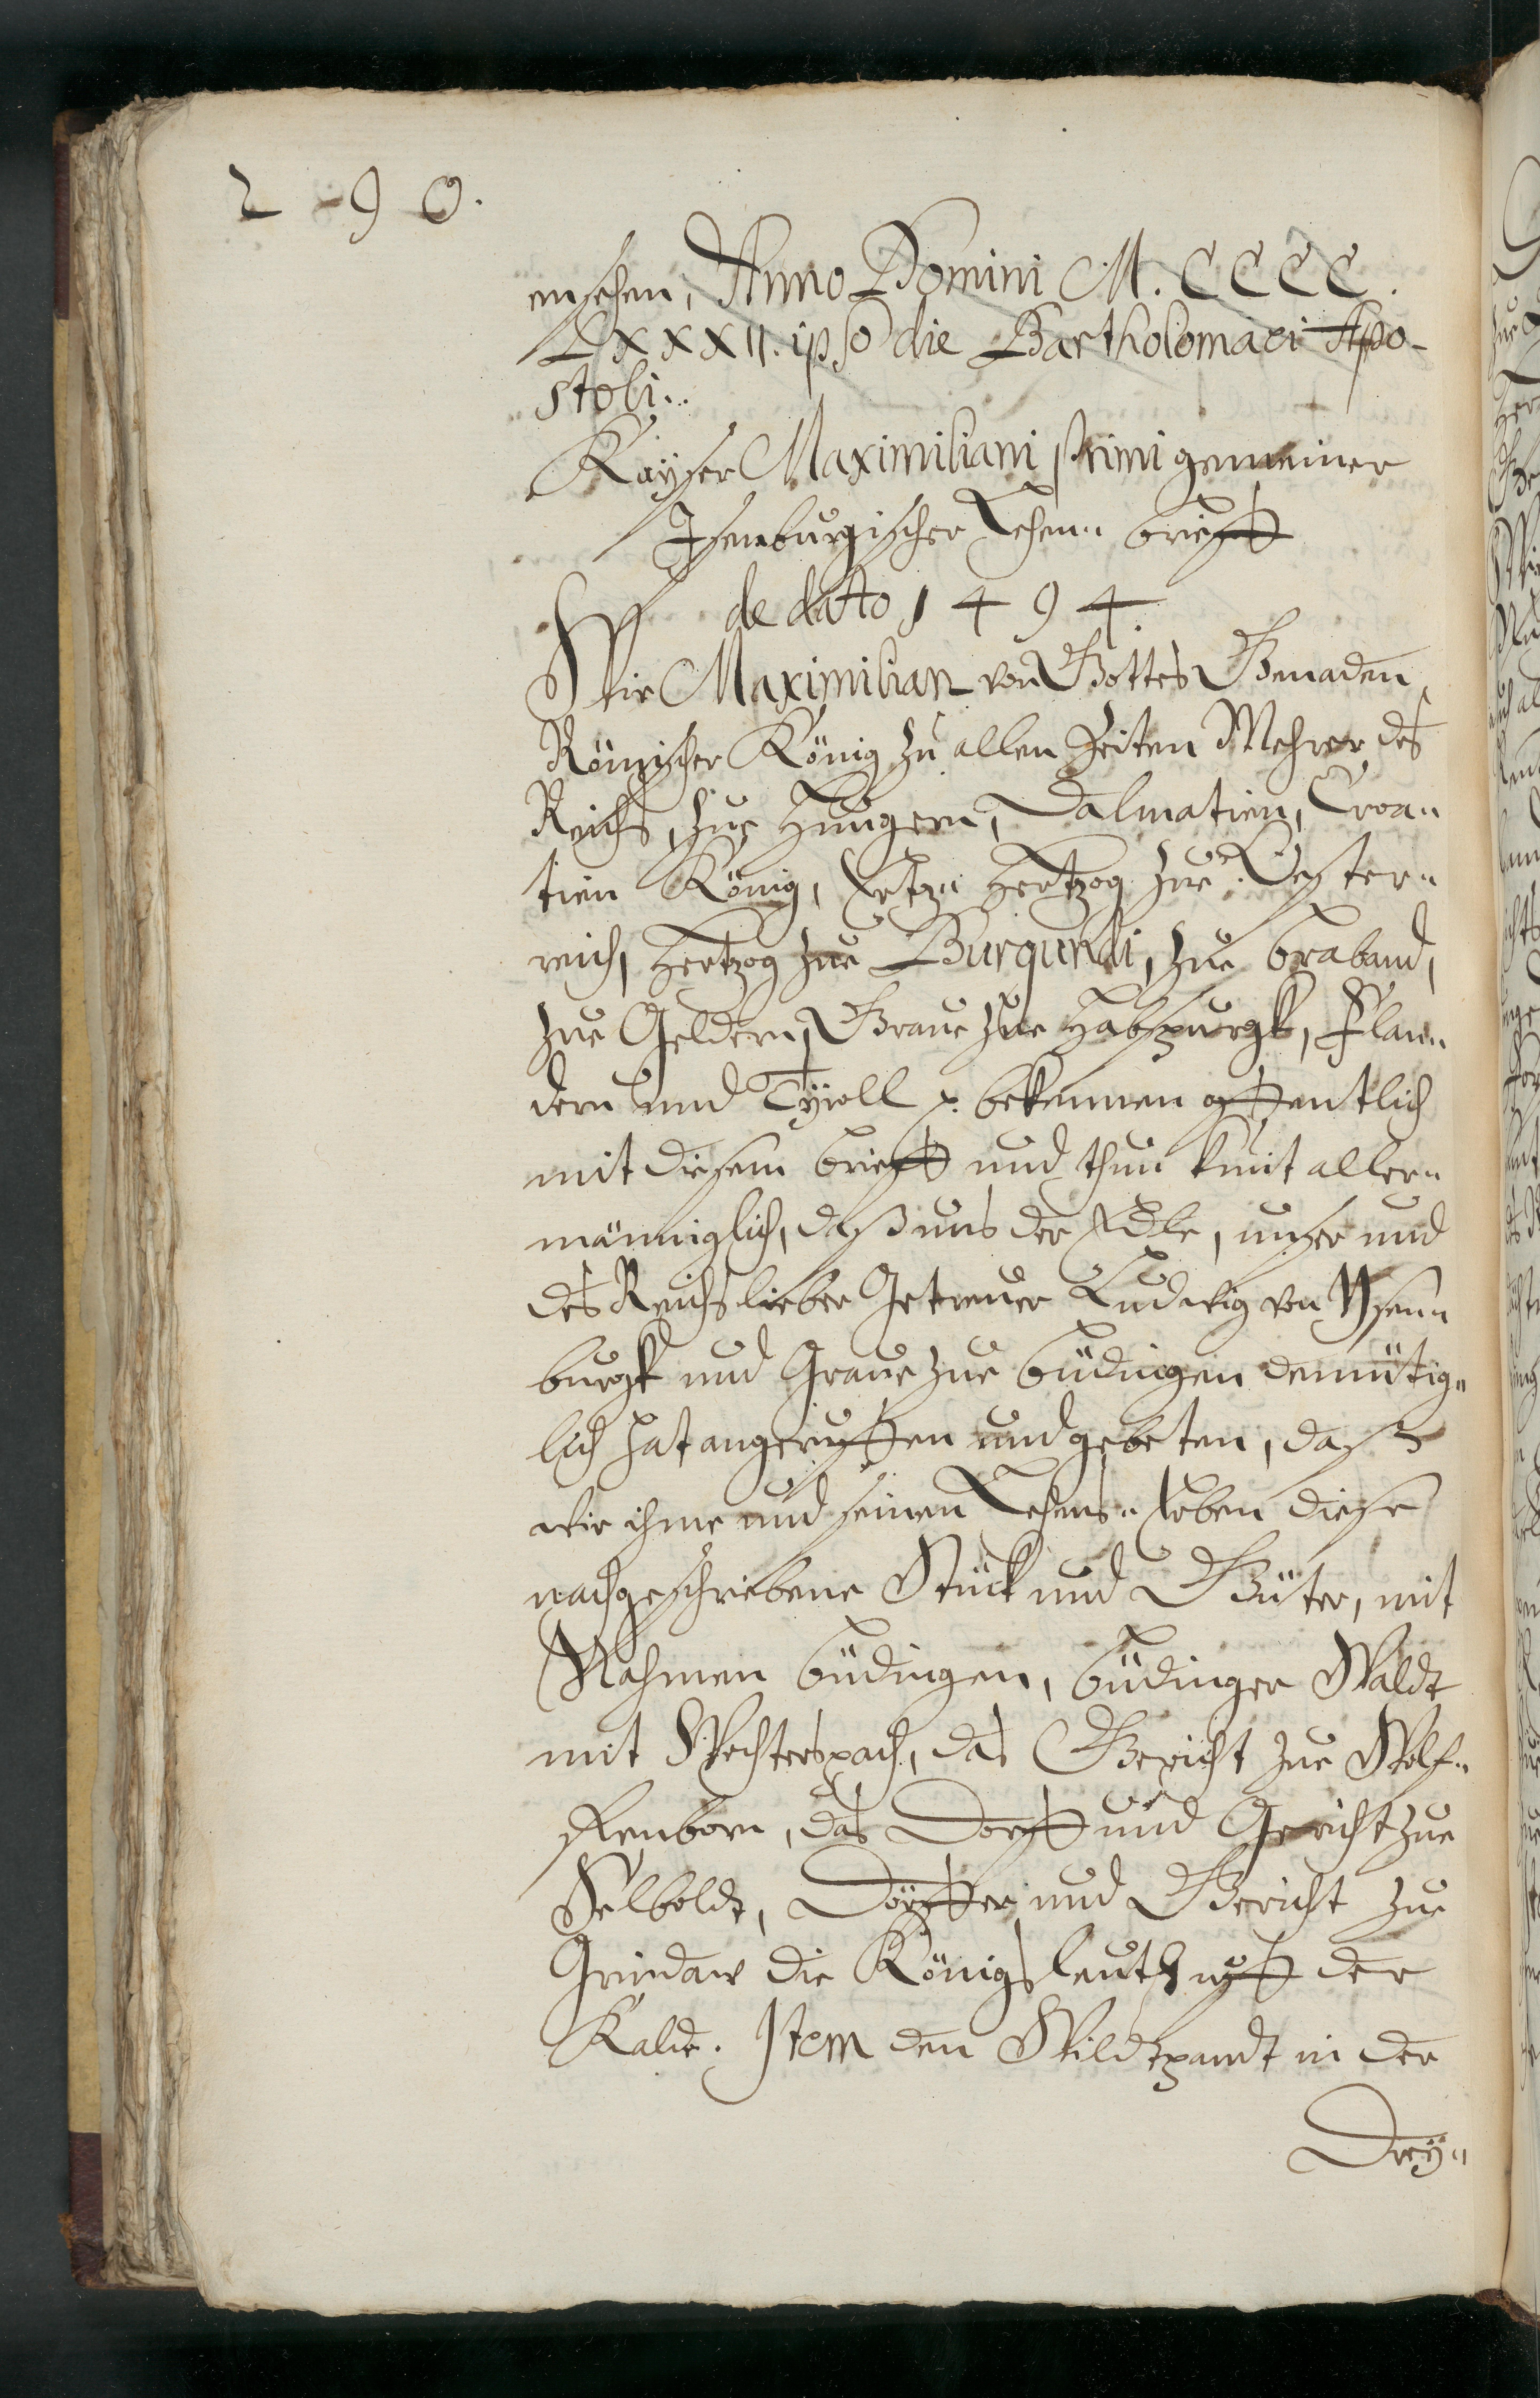 2 9 0.
ensehen, Anno Domini M. CCCC.
LXXXII. ipso die Bartholomaei Apo-
stoli.
Kayser Maximiliani primi gemeiner
Isenburgischer Lehen- brieff
de dato 1494.
Wir Maximilian von Gottes Genaden,
Römischer König zu allen Zeiten Mehrer des
Reichs, zue Hungern, Dalmatien, Croa-
tien König, Ertz- Hertzog zue Oester-
reich, Hertzog zue Burgundi, zue Braband,
zue Geldern, Graue zue Habspurgk, Flan-
dern und Tyroll p. bekennen offentlich
mit diesem brieff und thun kunt aller-
männiglich, daß uns der Edle, unser und
des Reichs lieber Getreuer Ludwig von Ysen-
burgk und Graue zue Büdingen demütig-
lich hat angeruffen und gebeten, daß
wir ihme und seinen Lehens- Erben diese
nachgeschriebene Stück und Güter, mit
Nahmen Büdingen, Büdinger Waldt
mit Wechterspach, das Gericht zue Wolf-
ffenborn, das Dorff und Gericht zue
Selboldt, Dörffer und Gericht zue
Grindaw die Königsleuth uff der
Kalde. Item den Wildtpandt in der
Drey-